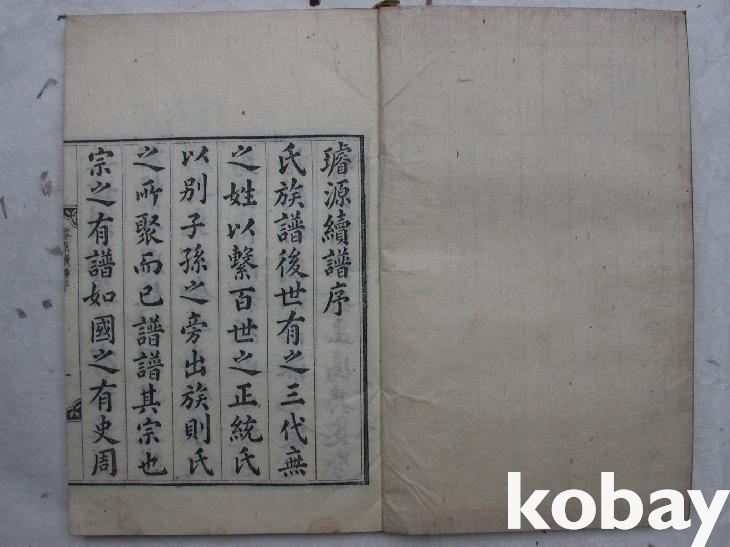 璿源續譜序
氏族譜後世有之三代無
之姓以繫百世之正統氏
以別子孫之旁出族則氏
之所聚而已譜譜其宗也
宗之有譜如國之有史周
kobay